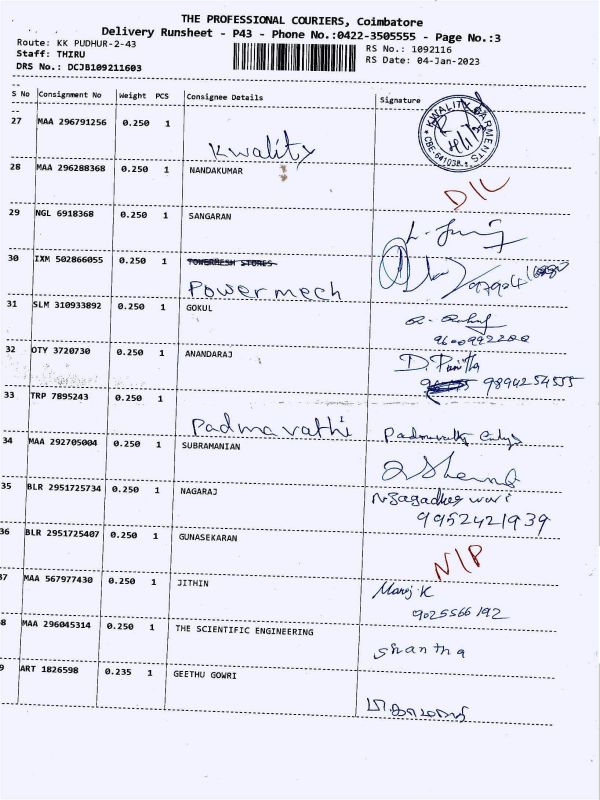 THE PROFESSIONAL COURIERS, Coimbatore
Delivery Runsheet - P43 - Phone No.:0422-3505555 - Page No.:3
Route: KK PUDHUR-2-43
RS No.: 1092116
Staff: THIRU
RS Date: 04-Jan-2023
DRS No.: DCJB109211603
S No Consignment No Weight PCS Consignee Details Signature
27 MAA 296791256 0.250 1
KWALITY GARMENTS
CBE-641038
Kwality
28 MAA 296288368 0.250 1 NANDAKUMAR
D/L
29 NGL 6918368 0.250 1 SANGARAN
30 IXM 502866055 0.250 1 TOWERMESH STORES
Powermech
31 SLM 310933892 0.250 1 GOKUL
32 OTY 3720730 0.250 1 ANANDARAJ
9894254555
33 TRP 7895243 0.250 1
Padmavathi
34 MAA 292705004 0.250 1 SUBRAMANIAN
35 BLR 2951725734 0.250 1 NAGARAJ
9952421939
36 BLR 2951725407 0.250 1 GUNASEKARAN
N/P
37 MAA 567977430 0.250 1 JITHIN
Manoj.K
9025566192
8 MAA 296045314 0.250 1 THE SCIENTIFIC ENGINEERING
Shantha
9 ART 1826598 0.235 1 GEETHU GOWRI